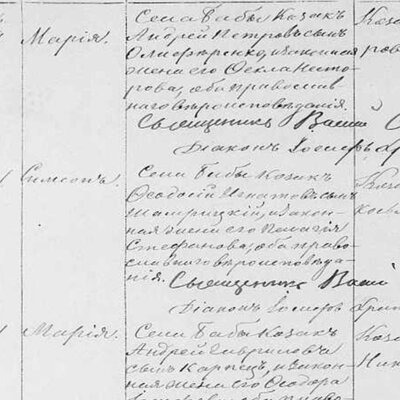 Марія.
Села Бабы Козакъ
Андрей Петровъ сынъ
Олиференко, и законная
жена его Оекла Несто-
рова, оба православ
наго вѣроисповѣданія.
Священникъ
Діаконъ Іосифъ
Симеонъ.
Села Бабы Козакъ
Ѳеодосій Игнатовъ сынъ
и закон-
ная жена его Пелагія
Стефанова, оба право-
славнаго вѣроисповѣда-
нія.
Священникъ
Діаконъ Іосифъ
Марія.
Села Бабы Козакъ
Андрей Гавриловъ
сынъ Карпецъ, и закон-
ная жена его Ѳеодора
оба право-